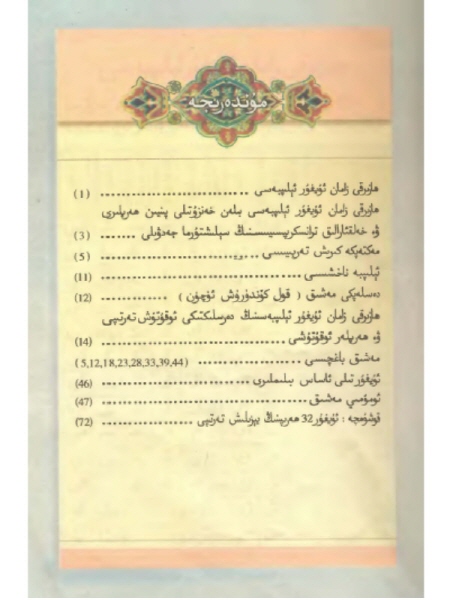 مۇندەرىجە
ھازىرقى زامان ئۇيغۇر ئېلىپبەسى ............................ (1)
ھازىرقى زامان ئۇيغۇر ئېلىپبەسى بىلەن خەنزۇتىلى پىنيىن ھەرپلىرى
ۋە خەلقئارالىق ترانسكرىپسىيىسىنىڭ سېلىشتۇرما جەدۋىلى ........ (3)
مەكتەپكە كىرىش تەربىيىسى ............................ (5)
ئېلىپبە ناخشىسى ............................ (11)
دەسلەپكى مەشىق ( قول كۆندۈرۈش ئۈچۈن ) ............. (12)
ھازىرقى زامان ئۇيغۇر ئېلىپبەسىنىڭ دەرسلىكتىكى ئوقۇتۇش تەرتىپى
ۋە ھەرپلەر ئوقۇتۇشى ............................ (14)
مەشىق باغچىسى .................. (5,12,18,23,28,33,39,44)
ئۇيغۇر تىلى ئاساسى بىلىملىرى ............................ (46)
ئومۇمىي مەشىق ............................ (47)
قوشۇمچە : ئۇيغۇر 32 ھەرپىنىڭ يېزىلىش تەرتىپى ................ (72)